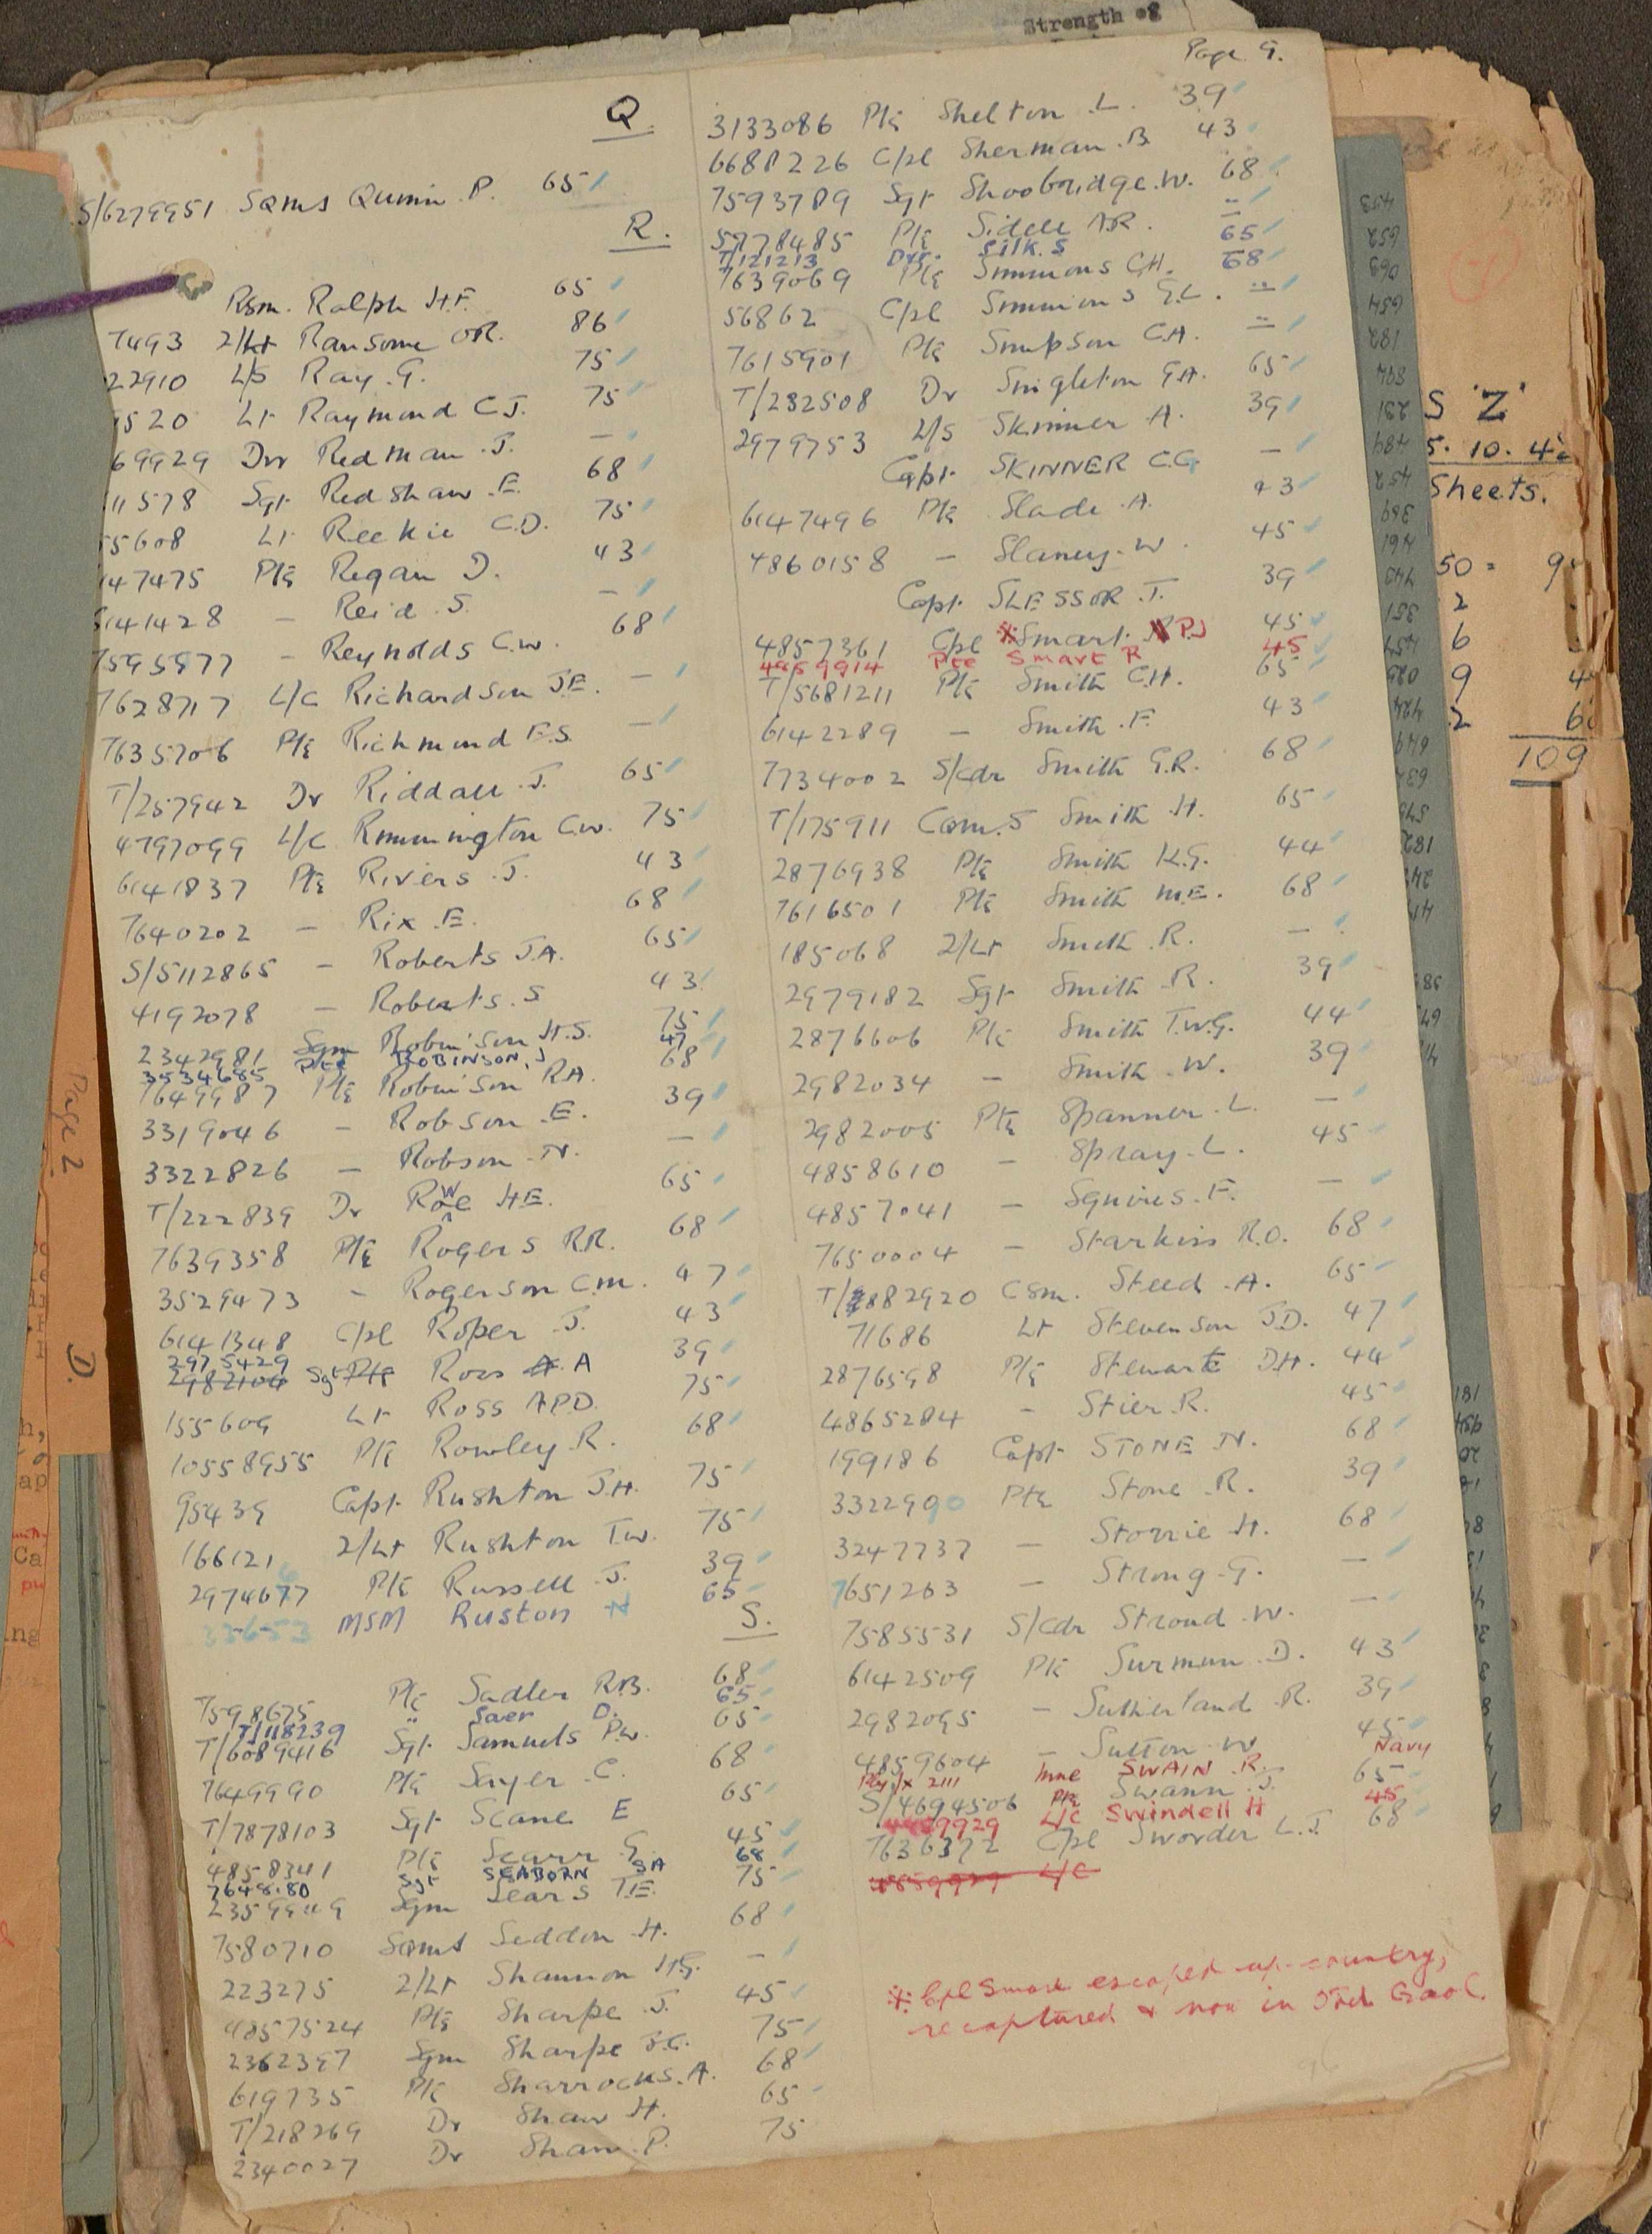 Strength of
Page 9.
Q.
S/6279951 SQMS Quinn P. 65
R.
RSM. Ralph H.F. 65
7493 2/Lt Ransome OR. 86
22910 L/S Ray .G. 75
520 Lt Raymond C.J. 75
69929 Dvr Redman .J. —
11578 Sgt Redshaw .E. 68
55608 Lt Reekie C.D. 75
147475 Pte Regan D. 43
6141428 — Reid .S. —
7595977 — Reynolds C.W. 68
7628717 L/C Richardson J.E. —
7635706 Pte Richmond F.S. —
T/257942 Dr Riddall .J. 65
4797099 L/C Rimmington C.W. 75
6141837 Pte Rivers .J. 43
7640202 — Rix .E. 68
S/5112865 — Roberts J.A. 65
4192078 — Roberts .S 43
2342981 Sgm Robinson H.S. 75
3534685 Pte ROBINSON. J 47
7649987 Pte Robinson R.A. 68
3319046 — Robson .E. 39
3322826 — Robson .N. —
T/222839 Dr Rowe H.E. 65
7639358 Pte Rogers R.R. 68
3529473 — Rogerson C.M. 47
6141348 Cpl Roper .J. 43
2975429
2982104 Sgt Pte Ross A. A 39
155609 Lt Ross A.P.D. 75
10558955 Pte Rowley .R. 68
95439 Capt Rushton J.H. 75
166121 2/Lt Rushton T.W. 75
2974677 Pte Russell .J. 39
33653 MSM Ruston N 65
S.
7598675 Pte Sadler R.B. 68
T/118239 " Saer D. 65
T/6089416 Sgt Samuels P.W. 65
7649990 Pte Sayer .C. 68
T/7878103 Sgt Scane E 65
4858341 Pte Scarr .G. 45
7648180 Sgt SEABORN SA 68
2359949 Sgm Sears T.E. 75
7580710 SQMS Seddon .H. 68
223275 2/Lt Shannon H.G. —
4857524 Pte Sharpe .J. 45
2362397 Sgm Sharpe 75
619735 Pte Sharrocks .A. 68
T/218269 Dr Shaw H. 65
2340027 Dr Shaw .P. 75
3133086 Pte Shelton .L. 39
6688226 Cpl Sherman .B 43
7593789 Sgt Shoobridge .W. 68
5778485 Pte Sidell A.R. "
T/121213 Dvr. SILK. S 65
7639069 Pte Simmons C.H. 68
56862 Cpl Simmons G.L. "
7615901 Pte Simpson C.A. "
T/232508 Dr Singleton G.A. 65
2979753 L/S Skinner A. 39
Capt SKINNER C.G —
6147496 Pte Slade .A. 43
4860158 — Slaney .W. 45
Capt SLESSOR .J. 39
4857361 Cpl *Smart. P.J 45
4859914 Pte Smart R 45
T/5681211 Pte Smith C.H. 65
6142289 — Smith .F. 43
7734002 S/Cdr Smith G.R. 68
T/175911 Smith .H. 65
2876938 Pte Smith K.G. 44
7616501 Pte Smith M.E. 68
185068 2/Lt Smith .R. —
2979182 Sgt Smith .R. 39
2876606 Pte Smith T.W.G. 44
2982034 — Smith .W. 39
2982005 Pte Spanner .L. —
4858610 — Spray .L. 45
4857041 — Squires .F. —
7650004 — Starkiss R.O. 68
T/2882920 CSM. Steed .A. 65
71686 Lt Stevenson J.D. 47
2876598 Pte Stewart D.H. 44
4865284 — Stier .R. 45
199186 Capt STONE .N. 68
3322990 Pte Stone .R. 39
3247737 — Storrie .H. 68
7651263 — Strong .G. —
7585531 S/Cdr Stroud .W. —
6142509 Pte Surmun .D. 43
2982095 — Sutherland .R. 39
4859604 — Sutton .W 45
Ply/x 2111 Mne SWAIN .R. Navy
S/4694506 Pte Swann .J. 65
4859929 L/C Swindell H 45
7636372 Cpl Sworder L.J. 68
4859929 L/C
* Cpl Smart escaped up-country,
recaptured & now in Gaol.
Page 2
D.
S 'Z'
5. 10. 42
Sheets.
50 = 9
2
6
9 4
2 6
109